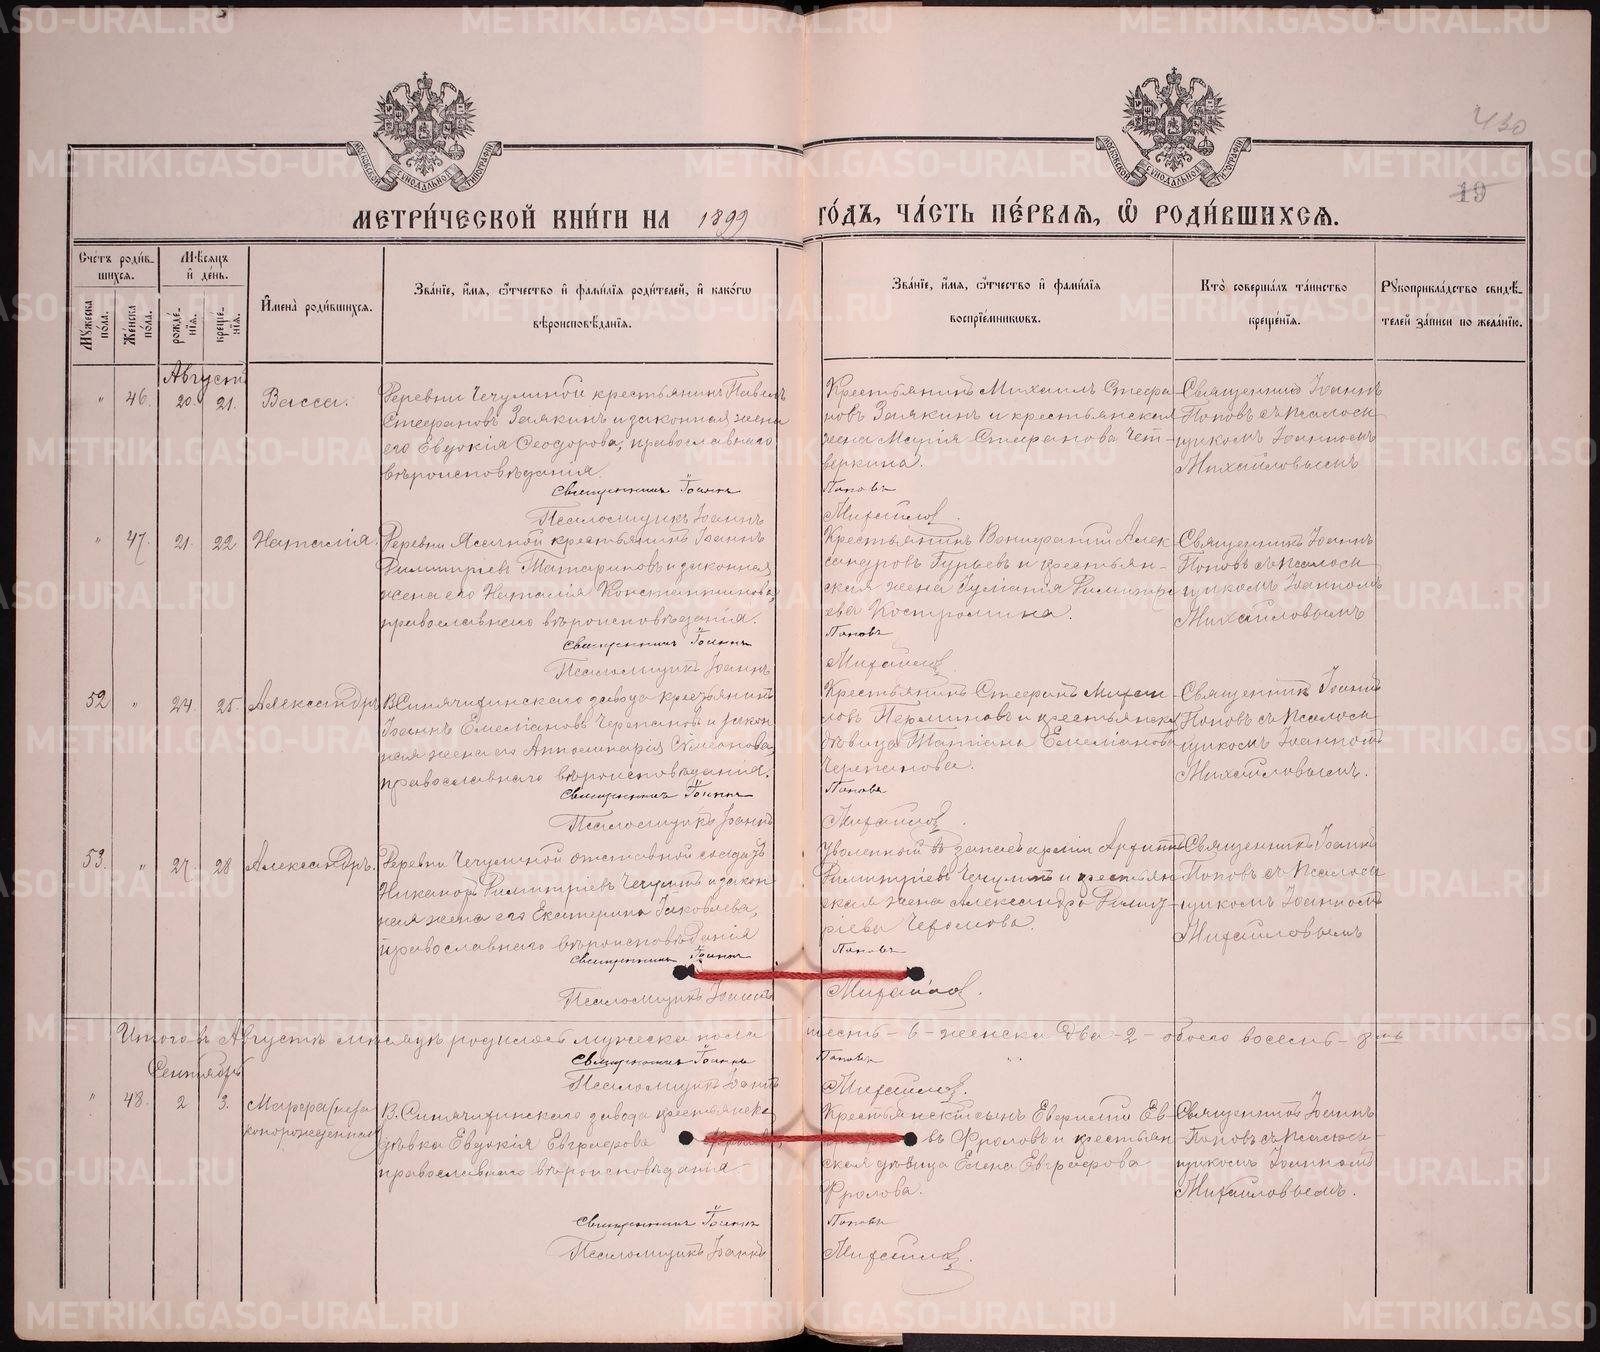 430
19
МОСКОВСКОЙ СѴНОДАЛЬНОЙ ТИПОГРАФІИ
МОСКОВСКОЙ СѴНОДАЛЬНОЙ ТИПОГРАФІИ
МЕТРИ́ЧЕСКОЙ КНИ́ГИ НА 1899 ГО́ДЪ, ЧА́СТЬ ПЕ́РВАѦ, Ѽ РОДИ́ВШИХСѦ.
Сче́тъ роди́в-
шихся.
Мѣ́сяцъ
и҆ де́нь.
Мꙋ́жеска по́ла.
Же́нска по́ла.
рожде́-
нїя.
креще́-
нїя.
И҆мена̀ роди́вшихся.
Зва́нїе, и҆́мя, ѻ҆́тчество и҆ фамѝлїя роди́телей, и҆ како́гѡ
вѣроисповѣ́данїя.
Зва́нїе, и҆́мя, ѻ҆́тчество и҆ фамѝлїя
воспрїе́мникѡвъ.
Кто̀ соверша́лъ та́инство
креще́нїя.
Рꙋкоприкла́дство свидѣ́-
телей за́писи по жела́нїю.
Августъ
" 46. 20. 21. Васса.
Деревни Чечулиной крестьянинъ Павелъ
Стефановъ Зенякинъ и законная жена
его Евдокія Ѳеодорова, православнаго
вѣроисповѣданія.
Священникъ Іоаннъ
Псаломщикъ Іоаннъ
Крестьянинъ Михаилъ Стефа
новъ Зенякинъ и крестьянская
жена Марія Стефанова Чет-
веркина.
Поповъ
Михайлов.
Священникъ Іоаннъ
Поповъ съ псалом-
щикомъ Іоанномъ
Михайловымъ
" 47. 21. 22 Наталія.
Деревни Ясачной крестьянинъ Іоаннъ
Димитріевъ Татариновъ и законная
жена его Наталія Константинова,
православнаго вѣроисповѣданія.
Священникъ Іоаннъ
Псаломщикъ Іоаннъ
Крестьянинъ Вонифатій Алек
сандровъ Гурьевъ и крестьян-
ская жена Іуліанія Димитрі
ева Костромина.
Поповъ
Михайлов.
Священникъ Іоаннъ
Поповъ съ псалом-
щикомъ Іоанномъ
Михайловымъ
52 " 24. 25. Александръ
В. Синячихинскаго завода крестьянинъ
Іоаннъ Емеліановъ Черепановъ и закон
ная жена его Апполинарія Симеонова,
православнаго вѣроисповѣданія.
Священникъ Іоаннъ
Псаломщикъ Іоаннъ
Крестьянинъ Стефанъ Михаи-
ловъ Перминовъ и крестьянская
дѣвица Татіана Емеліанова
Черепанова.
Поповъ
Михайлов.
Священникъ Іоаннъ
Поповъ съ псалом-
щикомъ Іоанномъ
Михайловымъ.
53. " 27. 28 Александръ.
Деревни Чечулиной отставной солдатъ
Никаноръ Димитріевъ Чечулинъ и закон
ная жена его Екатерина Іаковлева,
православнаго вѣроисповѣданія
Священникъ Іоаннъ
Псаломщикъ Іоаннъ
Уволенный въ запасъ арміи
Димитріевъ Чечулинъ и крестьян
ская жена Александра Димит-
ріева
Поповъ
Михайлов.
Священникъ Іоаннъ
Поповъ съ псалом-
щикомъ Іоанномъ
Михайловымъ
Итого въ Августѣ мѣсяцѣ родилось мужеска пола шесть - 6 - женска два - 2 - обоего восемь - 8мь
Священникъ Іоаннъ Поповъ
Псаломщикъ Іоаннъ Михайлов.
Сентябрь
" 48. 2 3. Марѳа (неза
коннорожденная)
В. Синячихинскаго завода крестьянска
дѣвка Евдокія Евграфова
православнаго вѣроисповѣданія.
Священникъ Іоаннъ
Псаломщикъ Іоаннъ
Крестьянскій сынъ Ев
въ Фроловъ и крестьян
ская дѣвица Елена Евграфова
Фролова.
Поповъ
Михайлов.
Священникъ Іоаннъ
Поповъ съ псалом-
щикомъ Іоанномъ
Михайловымъ.
METRIKI.GASO-URAL.RU